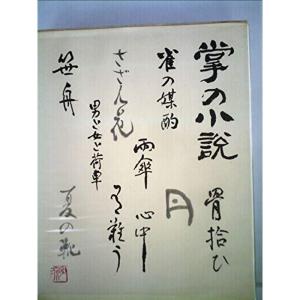 掌の小説
骨拾ひ
雀の媒酌
円
雨傘
心中
さざん花
有難う
男と女と荷車
笹舟
夏の靴